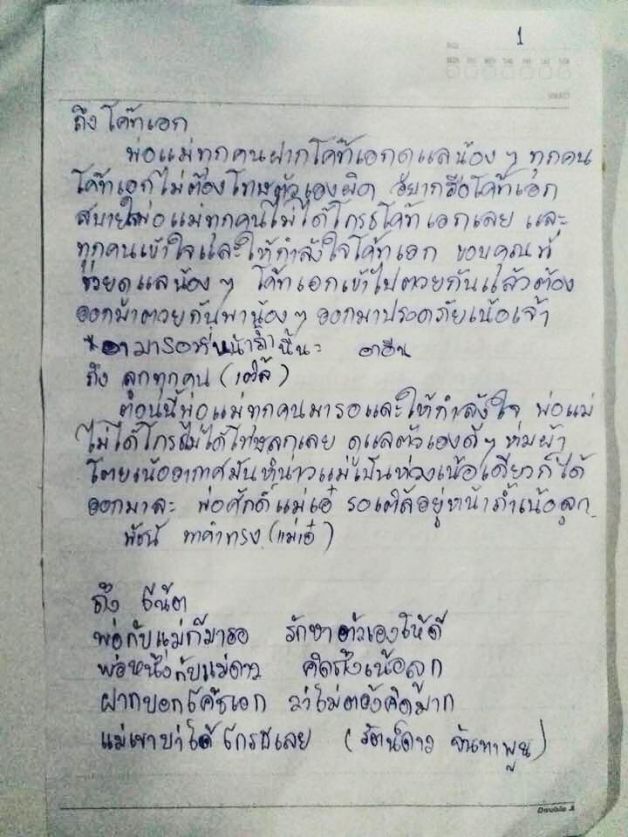 1
ถึง โค๊ทเอก
พ่อแม่ทุกคนฝากโค๊ทเอกดูแลน้อง ๆ ทุกคน
โค๊ทเอกไม่ต้องโทษตัวเองผิด อยากให้โค๊ทเอก
สบายใจพ่อแม่ทุกคนไม่ได้โกรธโค๊ทเอกเลย และ
ทุกคนเข้าใจและให้กำลังใจโค๊ทเอก ขอบคุณที่
ช่วยดูแลน้อง ๆ โค๊ทเอกเข้าไปตวยกันแล้วต้อง
ออกมาตวยกันพาน้อง ๆ ออกมาปลอดภัยเน้อเจ้า
มารอที่หน้าถ้ำนี้นะ
ถึง ลูกทุกคน
ตอนนี้พ่อแม่ทุกคนมารอและให้กำลังใจ พ่อแม่
ไม่ได้โกรธไม่ได้โทษลูกเลย ดูแลตัวเองดี ๆ ห่มผ้า
โตยเน้ออากาศมันหนาวแม่เป็นห่วงเน้อเดียวก็ได้
ออกมาละ พ่อศักดิ์แม่เอ๋ รอเติ้ลอยู่หน้าถ้ำเน้อลูก
พัชนี ทาคำทรง (แม่เอ๋)
ถึง ธีน๊ต
พ่อกับแม่ก็มารอ รักษาตัวเองให้ดี
พ่อหนึ่งกับแม่ดาว คิดถึงเน้อลูก
ฝากบอกโค้ชเอก ว่าไม่ต้องคิดมาก
แม่เขาบ่าได้โกรธเลย (รัตน์ดาว จันทาพูน)
Double A